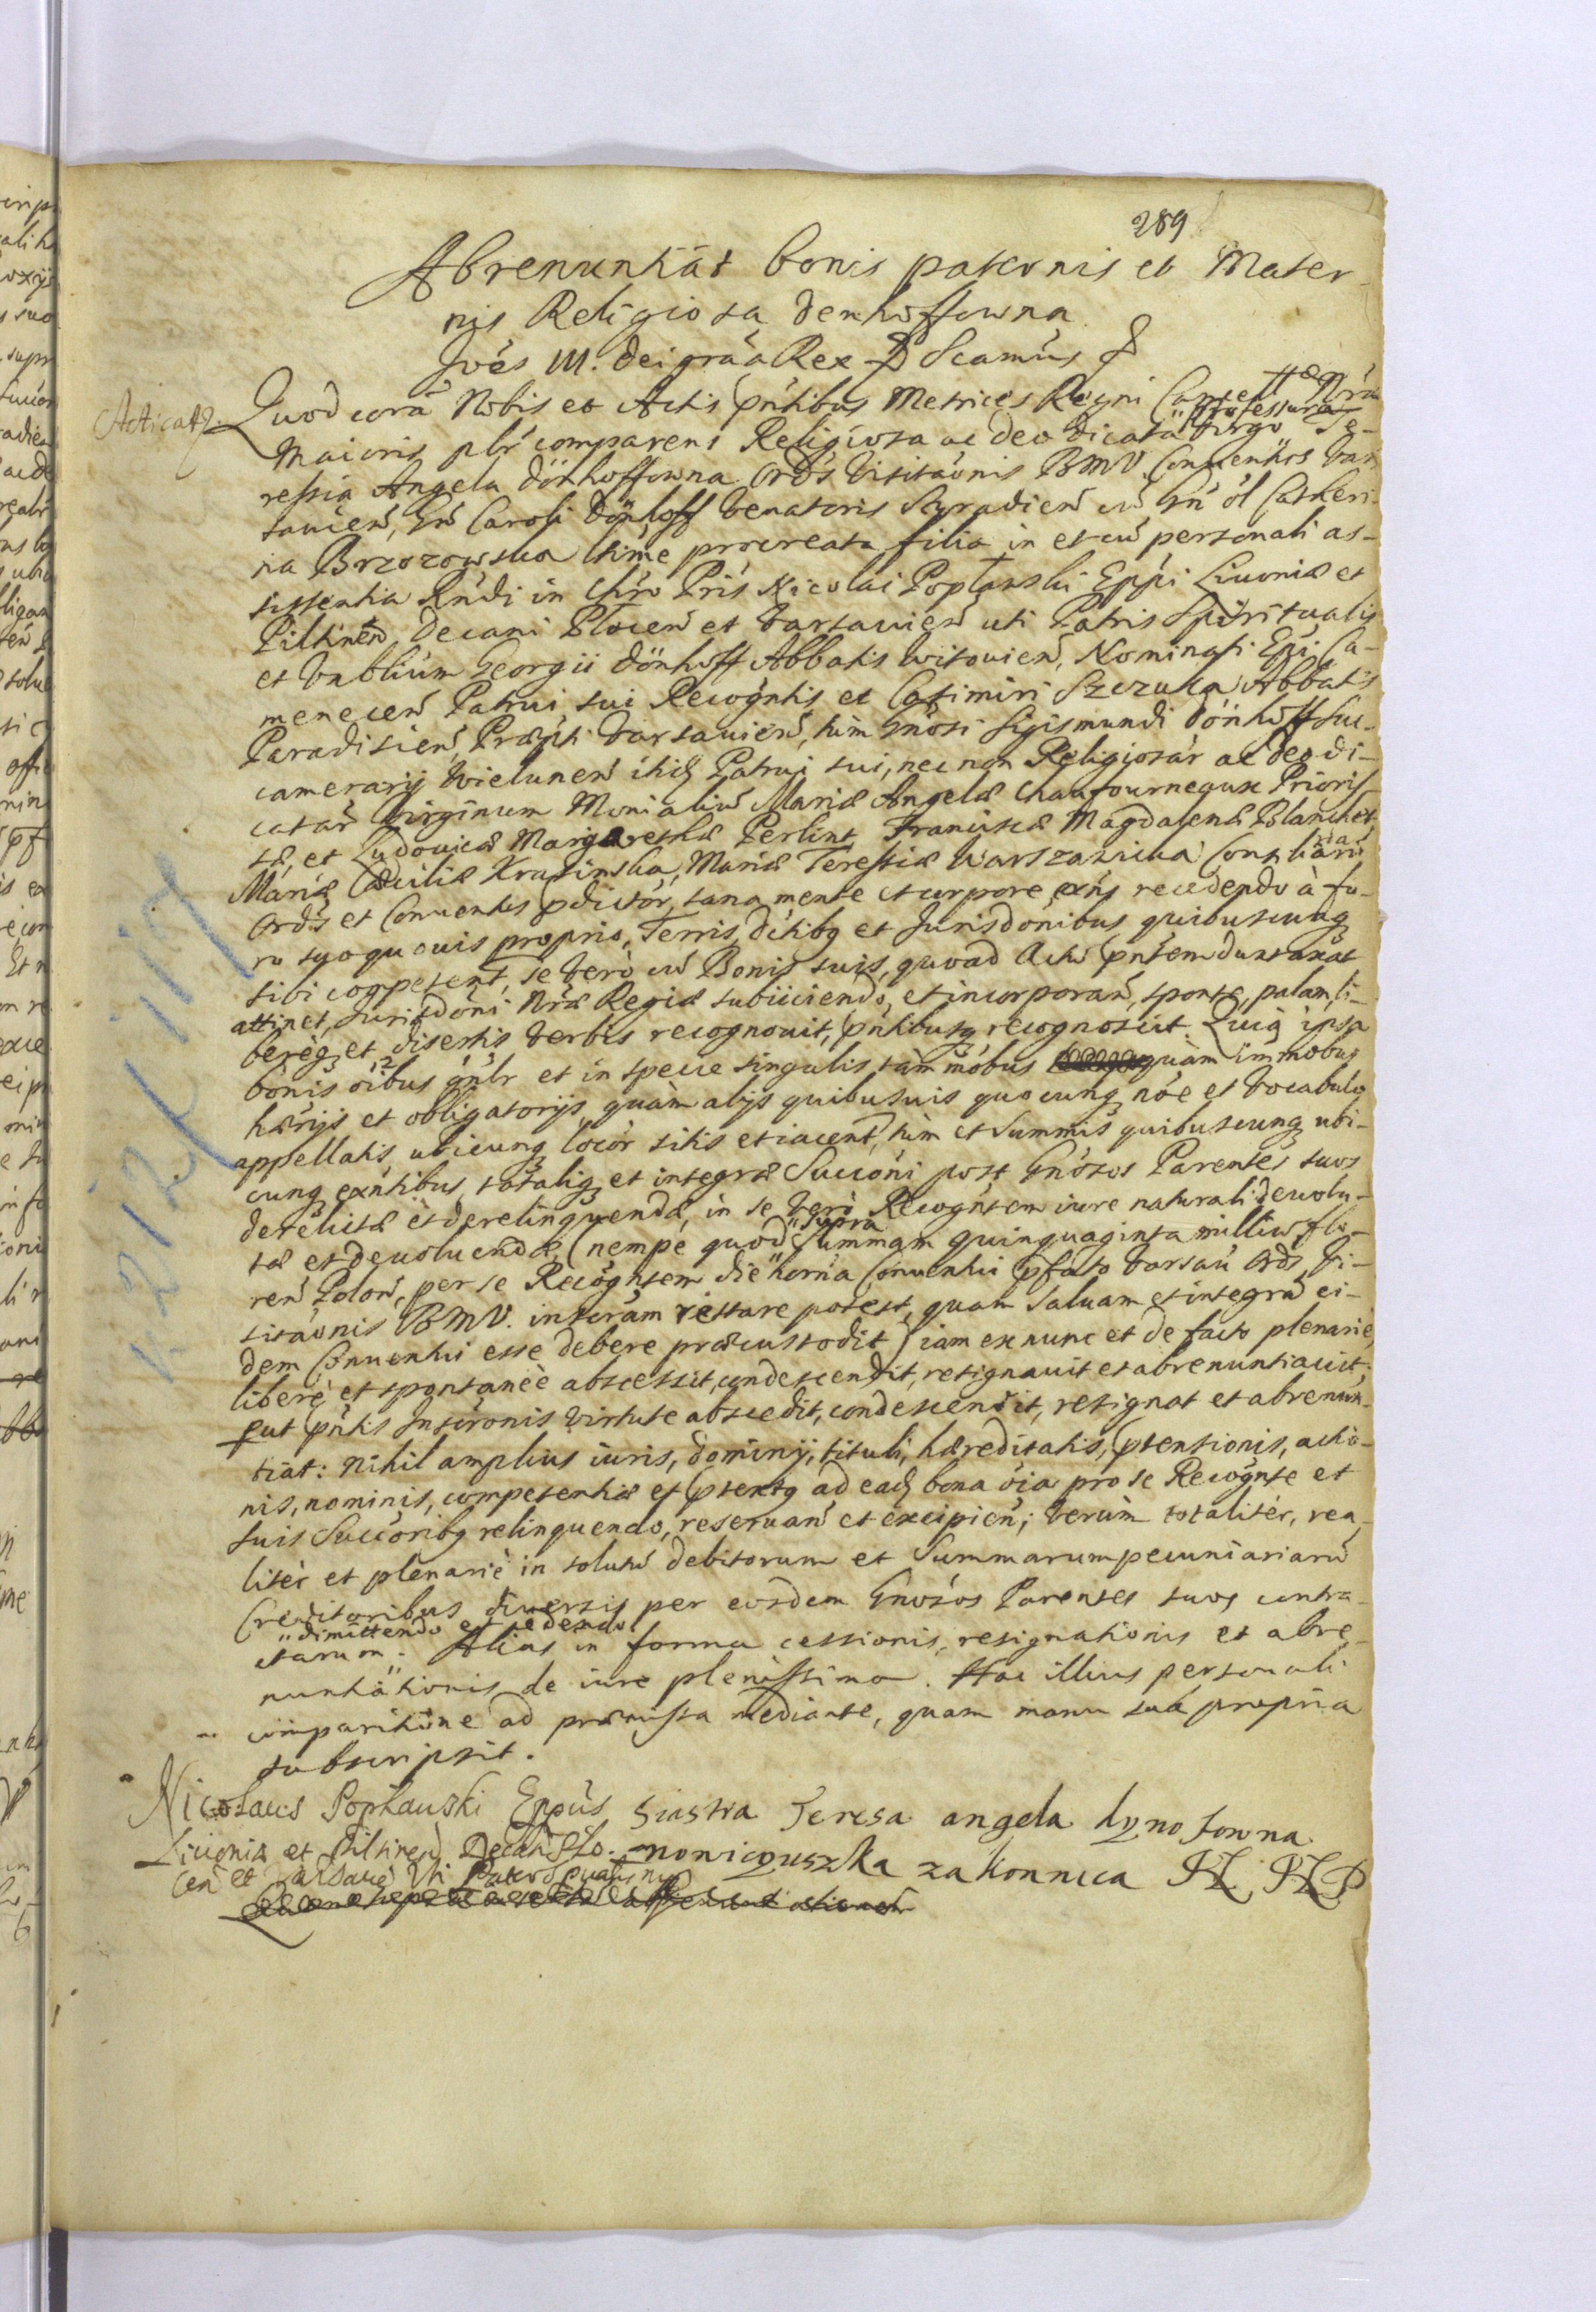 289
Abrenuntiat bonis paternis et Mater-
nis Religiosa denhoffowna
Joes III. dei gra'a Rex Scamus
Acticat
Quod cora Nobis et Actis pntibus Metrices Regni Cancell Nra
Maioris plr comparens Religiosa ac deo dicata "Professura" Virgo Te-
ressia Angela Dönhoffowna Ord's Visita'onis BMV Conuentus Var
sauien, Gn Caroli Dönhoff Venatoris Syradien cu Gn ol Catheri-
na Brzozowska ltime procreata filia in et cu personali as-
sistentia Rndi in Chro Pris Nicolai Poplawski Eppi Liuoniæ et
Piltinen, Decani Plocen et Varsauien uti Patris Spiritualis
et Vnblium Georgii Dönhoff Abbatis Witouien, Nominati Epi Ca-
menecen Patrui sui Recogntis et Casimiri Szczuka Abbatis
Paradisien, Præpti Varsauien, tum Gnosi Sigismundi Dönhoff Suc-
camerarij Wielunen itid Patrui sui, nec non Religiosar ac deo di-
catar Virginum Monialiu Mariæ Angelæ Chaufourneaux Prioris-
sæ, et Ludouicæ Margarethæ Perlint Franciscæ Magdalenæ Blanchet,
Mariæ Cæciliæ Krasinska, Mariæ Teressiæ Warszawicka Consiliaru
Ord's et Conuentus pdictor, sana mente et corpore exns recedendo à fo-
ro suo quouis proprio, Terris, ditibq et Jurisdonibus quibuscunq
sibi competent, se verò cu Bonis suis, quoad Actu pntem duntaxat
attinet, Jurisdoni Nræ Regiæ subiiciendo, et incorporan, sponte, palam, li-
bereq et disertis verbis recognouit, pntibusq recognoscit. Quia ipsa
bonis oibus gnlr et in specie singulis, tàm mobus quàm immobus
hæreijs et obligatorijs, quàm alijs quibusuis quocunq noe et vocabulo
appellatis, ubicunq locor sitis et iacent, tùm et Summis quibuscunq ubi-
cunq exntibus, totaliq et integræ Succoni post Gnosos Parentes suos
derelictæ et derelinquendæ, in se verò Recogntem iure naturali deuolu-
tæ et deuoluendæ, (nempe quod "supra" Summam quinquaginta milliu flo-
ren Polon, per se Recogntem die herna Conuentui pfato Varsau Ord's Vi-
sita'onis BMV. inscram restare potest, quam saluam et integra ei-
dem Conuentui esse debere præcustodit) iam ex nunc et de facto plenariè,
liberè et spontaneè abscessit, condescendit, resignauit et abrenuntiauit;
put pntis Inscronis virtute abscedit, condescendit, resignat et abrenun-
tiat: Nihil amplius iuris, dominij, tituli, hæreditatis, ptensionis, actio-
nis, nominis, competentiæ et ptextq ad ead bona oia pro se Recognte et
suis Succoribq relinquendo, reseruan et excipien; Verùm totalitèr, rea-
litèr et plenariè in solutu debitorum et Summarum pecuniariaru
Creditoribus diuersis per eosdem Gnosos Parentes suos contra-
ctarum "dimittendo et cedendo. Alias in forma cessionis, resignationis et abre-
nuntiationis de iure plenissima. Hac illius personali
comparitione ad præmissa mediante, quam manu sua propria
subscripsit.
Nicolaus Popławski Eppus
Liuoniæ et Piltinen Decan Plo-
cen et Varsauie Uti Pater Spualis mp
Siastra Teresa angela dynofowna
nowicyuszka zakonnica